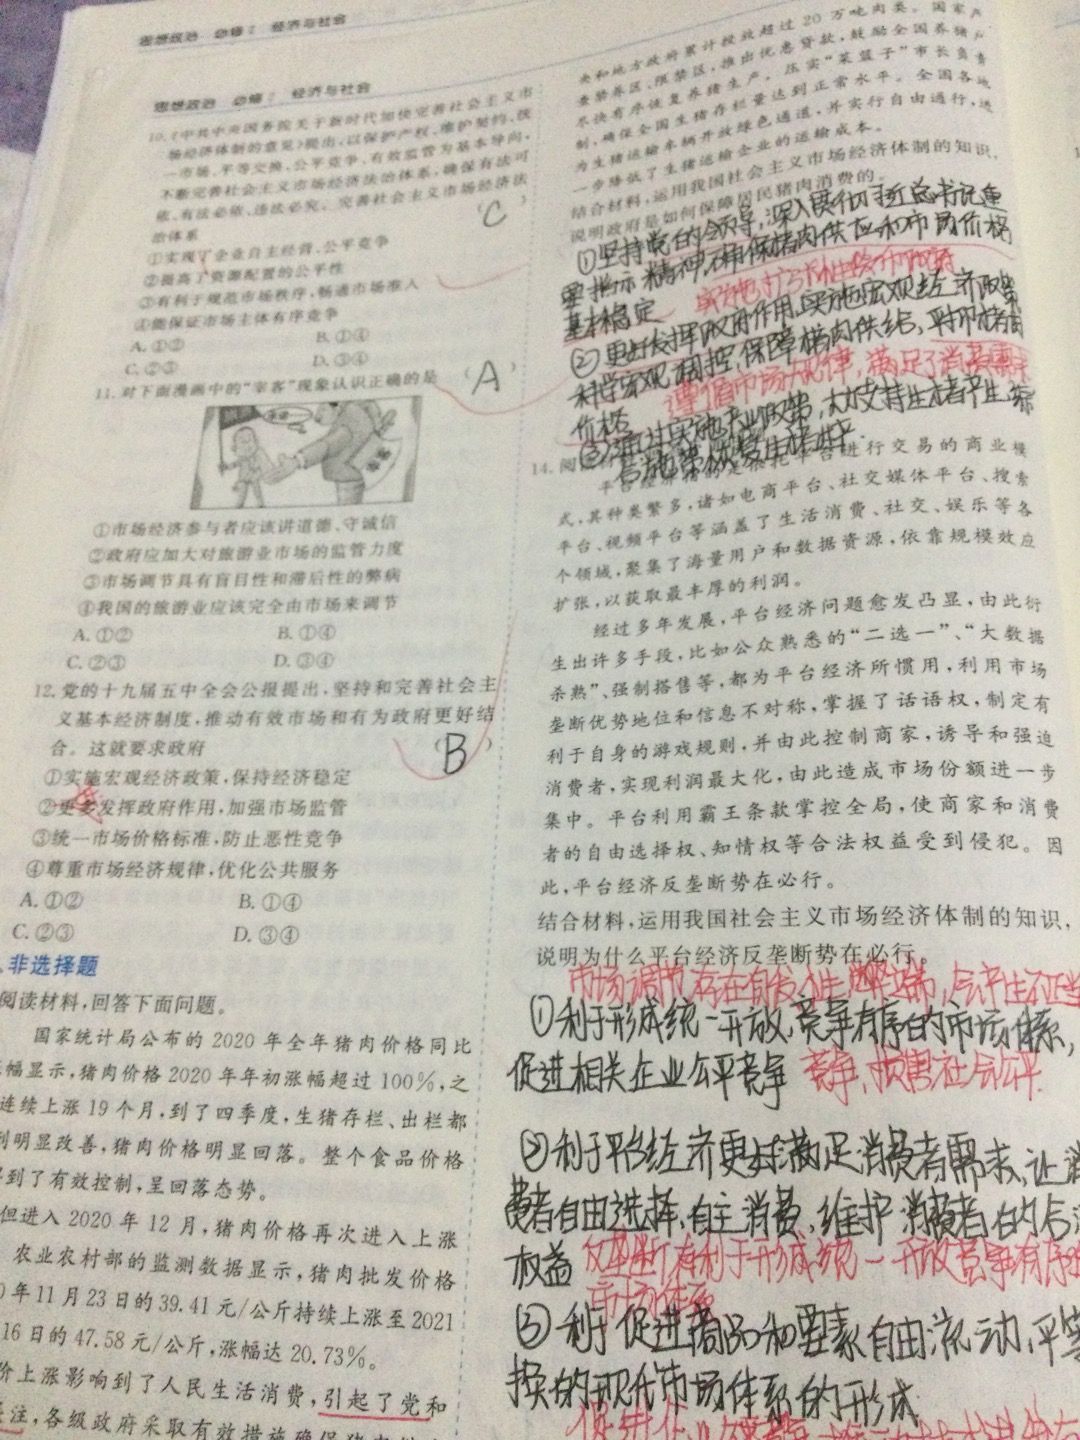 思想政治 必修2 经济与社会
思想政治 必修2 经济与社会
10.《中共中央国务院关于新时代加快完善社会主义市
场经济体制的意见》提出,以保护产权、维护契约、统
一市场、平等交换、公平竞争、有效监管为基本导向,
不断完善社会主义市场经济法治体系,确保有法可
依、有法必依、违法必究。完善社会主义市场经济法
治体系 (C)
①实现了企业自主经营、公平竞争
②提高了资源配置的公平性
③有利于规范市场秩序,畅通市场准入
④能保证市场主体有序竞争
A.①② B.①④
C.②③ D.③④
11.对下面漫画中的“宰客”现象认识正确的是 (A)
①市场经济参与者应该讲道德、守诚信
②政府应加大对旅游业市场的监管力度
③市场调节具有盲目性和滞后性的弊病
④我国的旅游业应该完全由市场来调节
A.①② B.①④
C.②③ D.③④
12.党的十九届五中全会公报提出,坚持和完善社会主
义基本经济制度,推动有效市场和有为政府更好结
合。这就要求政府 (B)
①实施宏观经济政策,保持经济稳定
②更多发挥政府作用,加强市场监管
③统一市场价格标准,防止恶性竞争
④尊重市场经济规律,优化公共服务
A.①② B.①④
C.②③ D.③④
非选择题
阅读材料,回答下面问题。
国家统计局公布的2020年全年猪肉价格同比
幅显示,猪肉价格2020年年初涨幅超过100%,之
连续上涨19个月,到了四季度,生猪存栏、出栏都
明显改善,猪肉价格明显回落。整个食品价格
到了有效控制,呈回落态势。
但进入2020年12月,猪肉价格再次进入上涨
农业农村部的监测数据显示,猪肉批发价格
年11月23日的39.41元/公斤持续上涨至2021
16日的47.58元/公斤,涨幅达20.73%。
价上涨影响到了人民生活消费,引起了党和
注,各级政府采取有效措施确保猪肉
央和地方政府累计投放超过20万吨肉类。国家
查禁养区、限禁区,推出优惠贷款,鼓励全国养猪户
尽快有序恢复养猪生产。压实“菜篮子”市长负责
制,确保全国生猪存栏量达到正常水平。全国各地
为生猪运输车辆开放绿色通道,并实行自由通行,进
一步降低了生猪运输企业的运输成本。
结合材料,运用我国社会主义市场经济体制的知识,
说明政府是如何保障居民猪肉消费的。
①坚持党的领导,深入贯彻习近总书记重
要指示精神,确保猪肉供应和市场价格
基本稳定
②更好发挥政府作用,实施宏观经济政策
科学宏观调控,保障猪肉供给,平抑猪肉
价格 遵循市场规律,满足了消费需求
③通过实施产业政策,大力支持生猪产生,综
合施策恢复生猪生产.
14.阅
平台经济指的是依托平台进行交易的商业模
式,其种类繁多,诸如电商平台、社交媒体平台、搜索
平台、视频平台等涵盖了生活消费、社交、娱乐等各
个领域,聚集了海量用户和数据资源,依靠规模效应
扩张,以获取最丰厚的利润。
经过多年发展,平台经济问题愈发凸显,由此衍
生出许多手段,比如公众熟悉的“二选一”、“大数据
杀熟”、强制搭售等,都为平台经济所惯用,利用市场
垄断优势地位和信息不对称,掌握了话语权,制定有
利于自身的游戏规则,并由此控制商家,诱导和强迫
消费者,实现利润最大化,由此造成市场份额进一步
集中。平台利用霸王条款掌控全局,使商家和消费
者的自由选择权、知情权等合法权益受到侵犯。因
此,平台经济反垄断势在必行。
结合材料,运用我国社会主义市场经济体制的知识,
说明为什么平台经济反垄断势在必行。
市场调节存在自发性 弊端,会产生不正当
①利于形成统一开放、竞争有序的市场体系,
促进相关企业公平竞争 竞争,损害社会公平.
②利于平台经济更好满足消费者需求,让消
费者自由选择,自主消费,维护消费者的合法
权益 反垄断有利于形成统一开放竞争有序的
市场体系
③利于促进商品和要素自由流动,平等
换的现代市场体系的形成